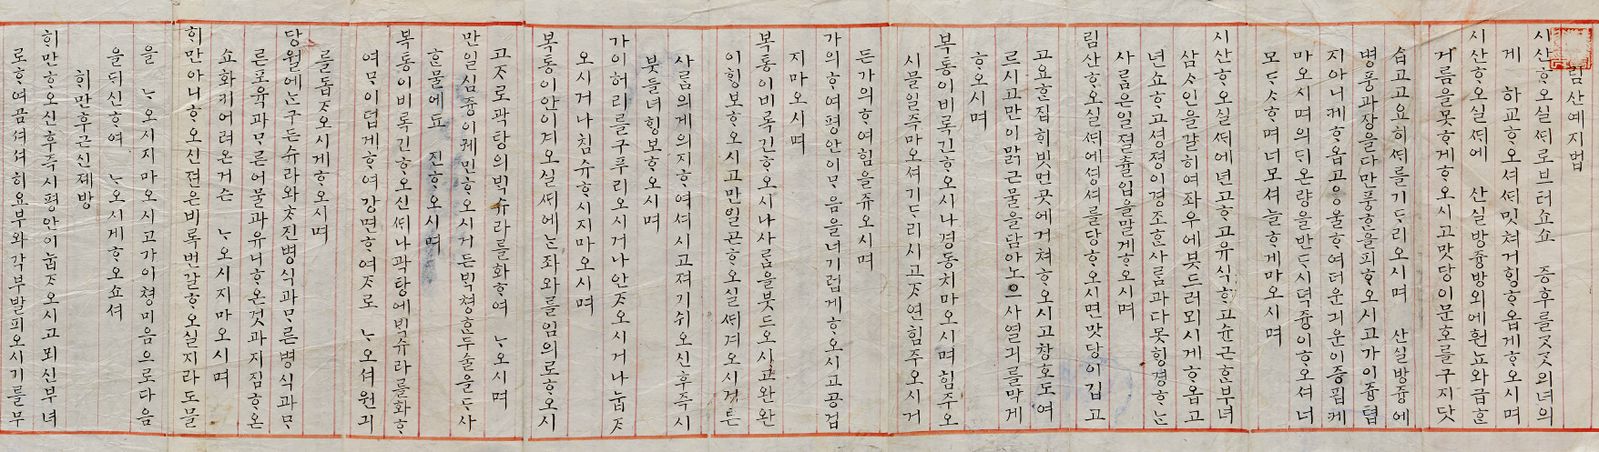 림산예지법
시산ᄒᆞ오실ᄯᆡ로브터쇼쇼 증후를ᄌᆞᄌᆞ의녀의
게 하교ᄒᆞ오셔ᄯᆡ밋쳐거ᄒᆡᆼᄒᆞ옵게ᄒᆞ오시며
시산ᄒᆞ오실ᄯᆡ에 산실방즁방외에훤뇨와급ᄒᆞᆫ
거름을못ᄒᆞ게ᄒᆞ오시고맛당이문호를구지닷
습고고요히ᄯᆡ를기ᄃᆞ리오시며 산실방즁에
병풍과장을다만풍한을피ᄒᆞ오시고가이즁텹
지아니케ᄒᆞ옵고응울ᄒᆞ여더운긔운이증핍게
마오시며의ᄃᆡ온량을반ᄃᆞ시덕즁이ᄒᆞ오셔너
모ᄃᆞᄉᆞᄒᆞ며너모셔늘ᄒᆞ게마오시며
시산ᄒᆞ오실ᄯᆡ에년고ᄒᆞ고유식ᄒᆞ고슌근ᄒᆞᆫ부녀
삼ᄉᆞ인을ᄀᆞᆯ희여좌우에븟드러뫼시게ᄒᆞ옵고
년쇼ᄒᆞ고셩졍이경조ᄒᆞᆫ사ᄅᆞᆷ과다못ᄒᆡᆼ경ᄒᆞᄂᆞᆫ
사ᄅᆞᆷ은일졀츌입을말게ᄒᆞ오시며
림산ᄒᆞ오실ᄯᆡ에셩셔를당ᄒᆞ오시면맛당이깁고
고요ᄒᆞᆫ집ᄒᆡ빗먼곳에거쳐ᄒᆞ오시고창호도여
르시고만이맑근물을담아노으사열긔를막게
ᄒᆞ오시며
복통이비록긴ᄒᆞ오시나경동치마오시며힘주오
시믈일주마오셔기ᄃᆞ리시고ᄌᆞ연힘주오시거
든가의ᄒᆞ여힘을쥬오시며
가의ᄒᆞ여평안이ᄆᆞ음을너기럽게ᄒᆞ오시고공겁
지마오시며
복통이비록긴ᄒᆞ오시나사ᄅᆞᆷ을븟드오시고완완
이ᄒᆡᆼ보ᄒᆞ오시고만일곤ᄒᆞ오실ᄯᆡ겨오시거든
사ᄅᆞᆷ의게의지ᄒᆞ여셔시고져기쉬오신후즉시
붓들녀ᄒᆡᆼ보ᄒᆞ오시며
가이허리를구푸리오시거나안ᄌᆞ오시거나눕ᄌᆞ
오시거나침슈ᄒᆞ시지마오시며
복통이안이겨오실ᄯᆡ에ᄂᆞᆫ좌와를임의로ᄒᆞ오시
고ᄌᆞ로곽탕의ᄇᆡᆨ슈라를화ᄒᆞ여 ᄂᆞ오시며
만일심즁이케민ᄒᆞ오시거든ᄇᆡᆨ쳥ᄒᆞᆫ두술을ᄃᆞ사
ᄒᆞᆫ물에됴 진ᄒᆞ오시며
복통이비록긴ᄒᆞ오신ᄯᆡ나곽탕에ᄇᆡᆨ슈라를화ᄒᆞ
여ᄆᆞ이덥게ᄒᆞ여강면ᄒᆞ여ᄌᆞ로 ᄂᆞ오셔원긔
를돕ᄌᆞ오시게ᄒᆞ오시며
당월에ᄂᆞᆫ구든슈라와ᄎᆞ진병식과ᄆᆞ른병식과ᄆᆞ
른포육과ᄆᆞ른어물과유니ᄒᆞ온것과지짐ᄒᆞ온
쇼화키어려온거슨 ᄂᆞ오시지마오시며
ᄒᆡ만아니ᄒᆞ오신젼은비록번갈ᄒᆞ오실지라도믈
을 ᄂᆞ오시지마오시고가이쳥미음으로다음
을ᄃᆡ신ᄒᆞ여 ᄂᆞ오시게ᄒᆞ오쇼셔
ᄒᆡ만후근신졔방
ᄒᆡ만ᄒᆞ오신후즉시평안이눕ᄌᆞ오시고뫼신부녀
로ᄒᆞ여곰셔셔히요부와각부발피오시기를무